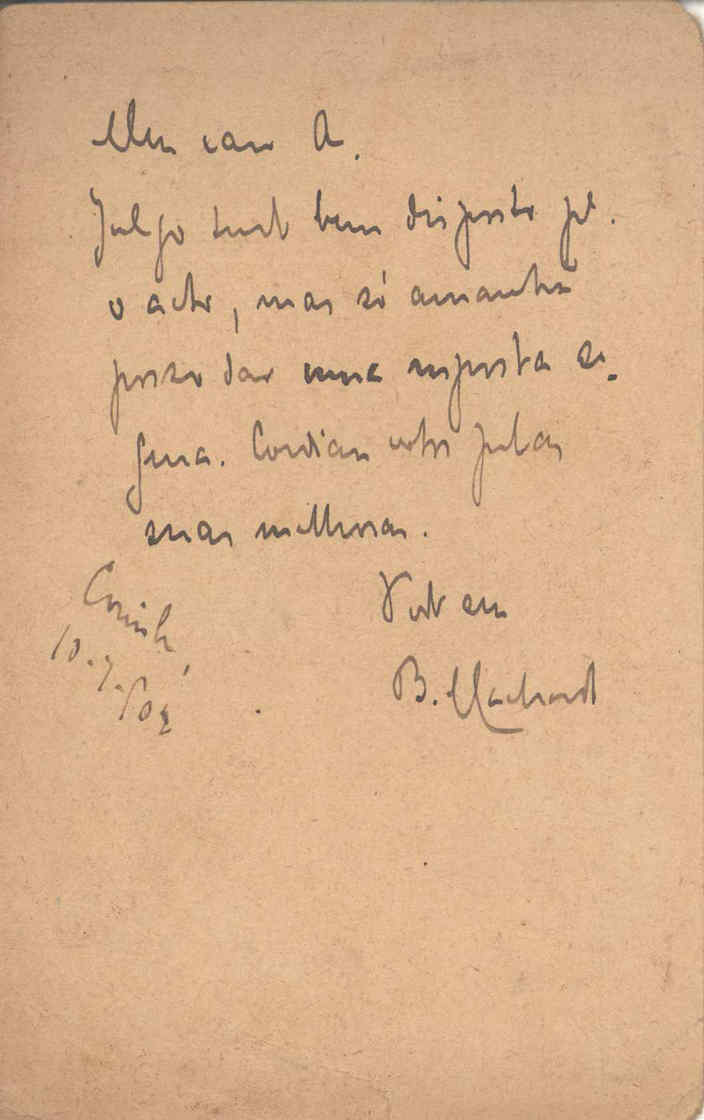 Meu caro A.
Julgo tudo bem disposto pª.
o acto, mas só amanhã
posso dar uma resposta se-
gura. Cordian pelas
suas melhoras.
Todo seu
B. Machado
Coimbª,
10.7.902